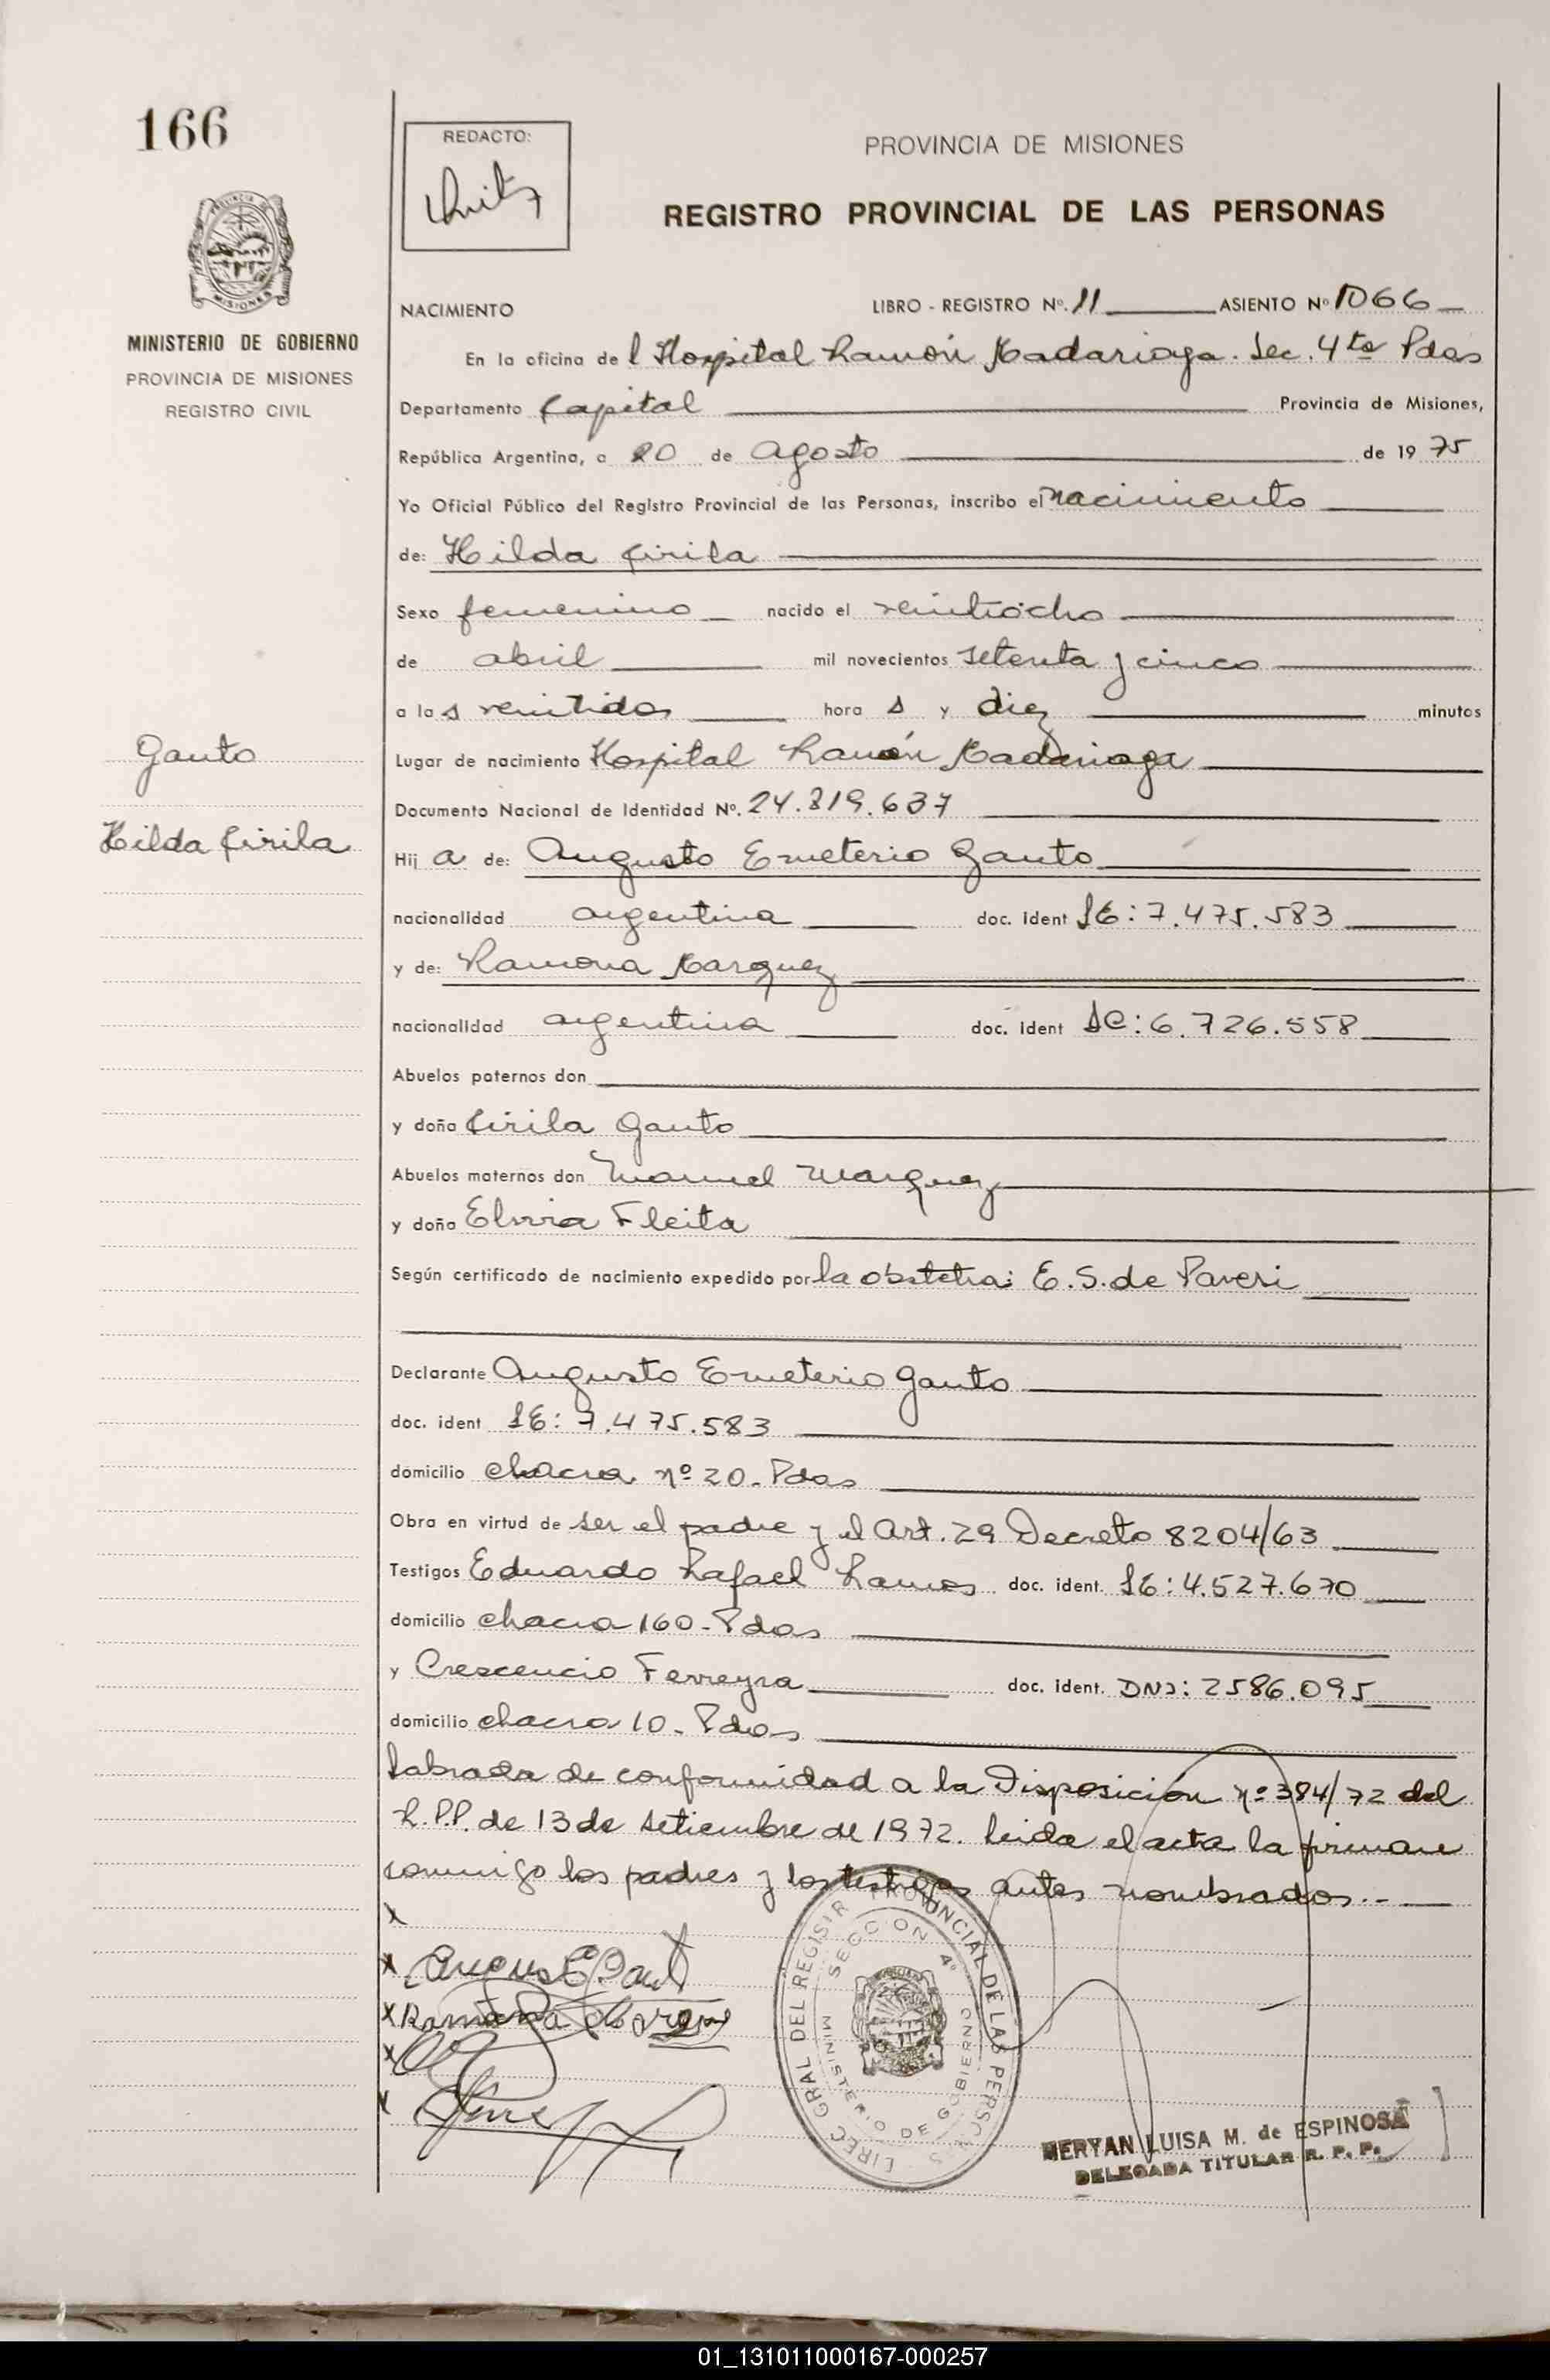 166
REDACTO:
PROVINCIA DE MISIONES
REGISTRO PROVINCIAL DE LAS PERSONAS
MINISTERIO DE GOBIERNO
PROVINCIA DE MISIONES
REGISTRO CIVIL
NACIMIENTO LIBRO - REGISTRO Nº. 11 ASIENTO Nº 1066
En la oficina de l Hospital Ramón Madariaga. Sec. 4ta Pdas
Departamento Capital Provincia de Misiones,
República Argentina, a 20 de agosto de 1975
Yo Oficial Público del Registro Provincial de las Personas, inscribo el nacimiento
de: Hilda Cirila
Sexo femenino nacido el veintiocho
de abril mil novecientos setenta y cinco
a las veintidos horas y diez minutos
Gauto
Lugar de nacimiento Hospital Ramón Madariaga
Documento Nacional de Identidad Nº. 24.819.637
Hilda Cirila
Hija de: Augusto Emeterio Gauto
nacionalidad argentina doc. ident LE: 7.475.583
y de: Ramona Marquez
nacionalidad argentina doc. ident LC: 6.726.558
Abuelos paternos don
y doña Cirila Gauto
Abuelos maternos don Manuel Marquez
y doña Elvira Fleita
Según certificado de nacimiento expedido por la obstetra: E. S. de Paveri
Declarante Augusto Emeterio Gauto
doc. ident LE: 7.475.583
domicilio chacra nº 20. Pdas
Obra en virtud de ser el padre y el Art. 29 Decreto 8204/63
Testigos Eduardo Rafael Ramos doc. ident. LE: 4.527.670
domicilio chacra 160 - Pdas
y Crescencio Ferreyra doc. ident. DNI: 2586.095
domicilio chacra 10 - Pdas
Labrada de conformidad a la Disposición nº 384/72 del
R.P.P. de 13 de setiembre de 1972. Leida el acta la firman
conmigo los padres y los testigos antes nombrados..-
X
X
X Ramona Marquez
X
X
DIREC GRAL DEL REGISTR PROVINCIAL DE LAS PERSONAS
SECCION 4ª
MINISTERIO DE GOBIERNO
MERYAN LUISA M. de ESPINOSA
DELEGADA TITULAR R. P. P.
01_131011000167-000257